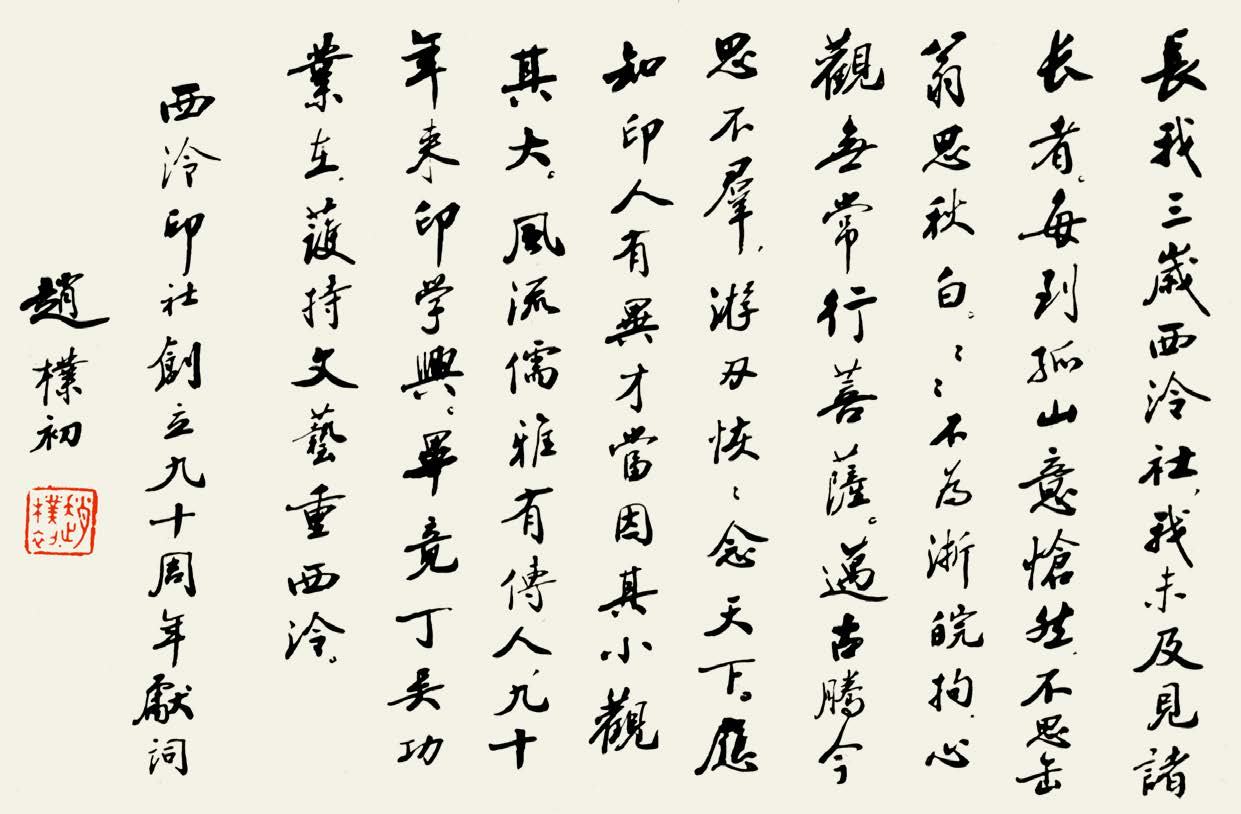 長我三歲西泠社，我未及見諸
长者。每到孤山意愴然，不思缶
翁思秋白。〻〻不為浙皖拘，心
觀無常行菩薩。邁古騰今
思不羣，游刃恢〻念天下。應
知印人有異才當因其小觀
其大。風流儒雅有傳人，九十
年来印学興。畢竟丁吴功
業在，護持文藝重西泠。
西泠印社創立九十周年獻詞
趙樸初
趙樸初